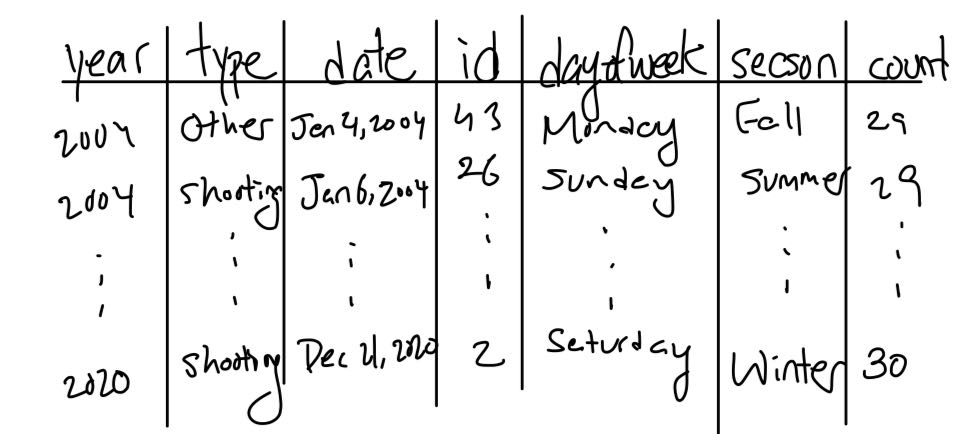 year type date id dayofweek secson count
2004 Other Jan 4, 2004 43 Monday Fall 29
2004 Shooting Jan 6, 2004 26 Sunday Summer 29
2020 Shooting Dec 21, 2020 2 Saturday Winter 30